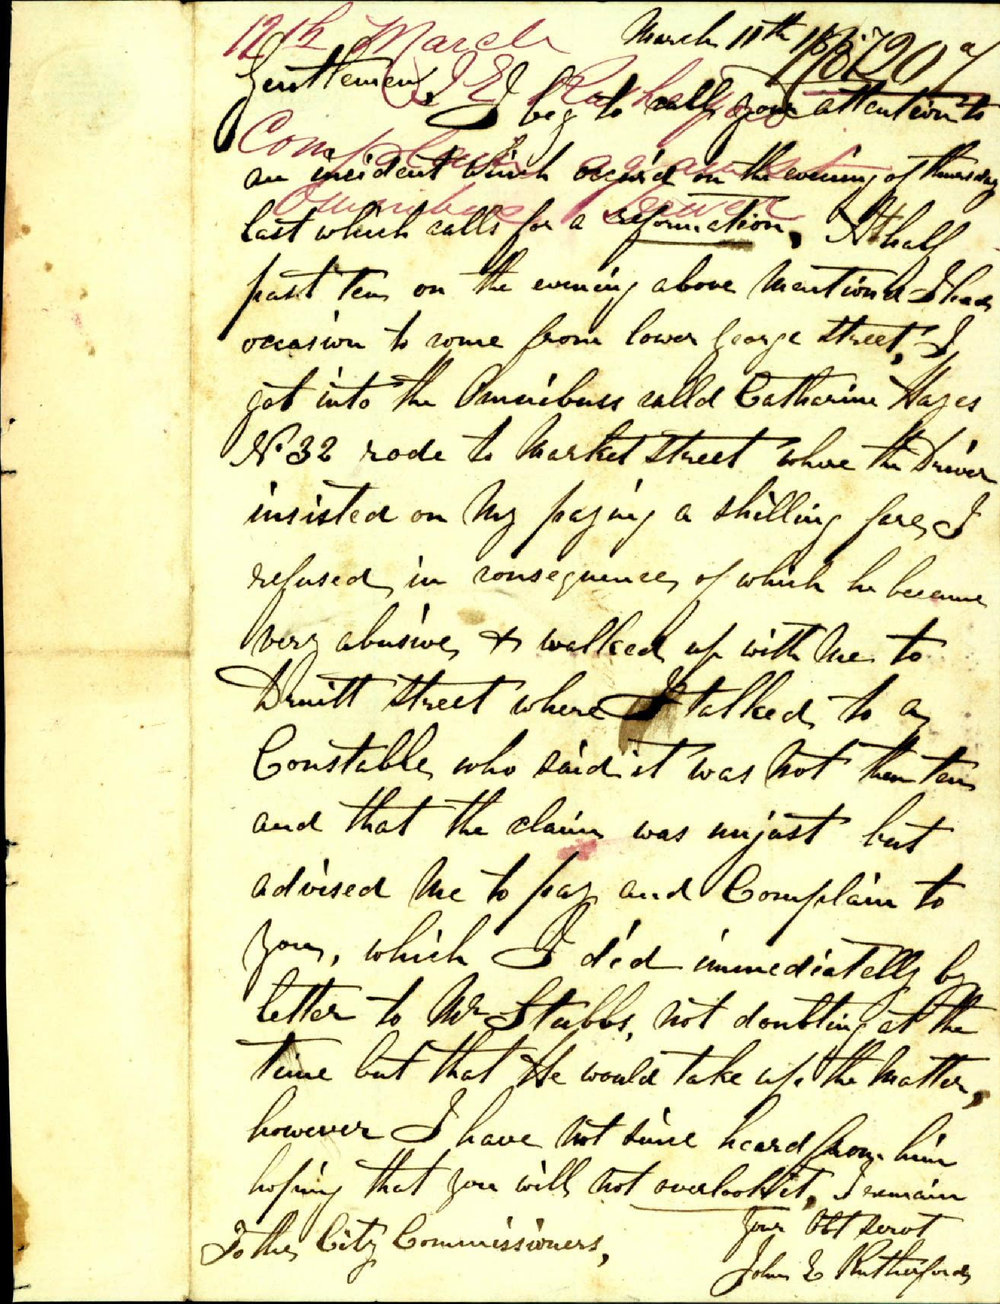 12th March
March 11th
J E Rutherford
Complaint against
Omnibus Driver
Gentlemen,
I beg to call your attention to
an incident which occurd on the evening of thursday
last which calls for a reformation, At half
past ten on the evening above mentiond I had
occasion to come from lower george street, I
got into the Omnibuss calld Catharine Hayes
No 32 rode to Market Street where the Driver
insisted on my paying a shilling fare, I
refused, in consequence, of which he became
very abusive, & walked up with me to
Druitt Street where I talked, to a
Constable, who said it was not then ten
and that the claim was unjust but
advised me to pay and Complain to
you, which I did immediatelly by
letter to Mr Stubbs, not doubting at the
time but that He would take up the matter,
however I have not since heard from him
hoping that you will not overlook it, I remain
your Obt servt
John E Rutherford
To the City Commissioners,